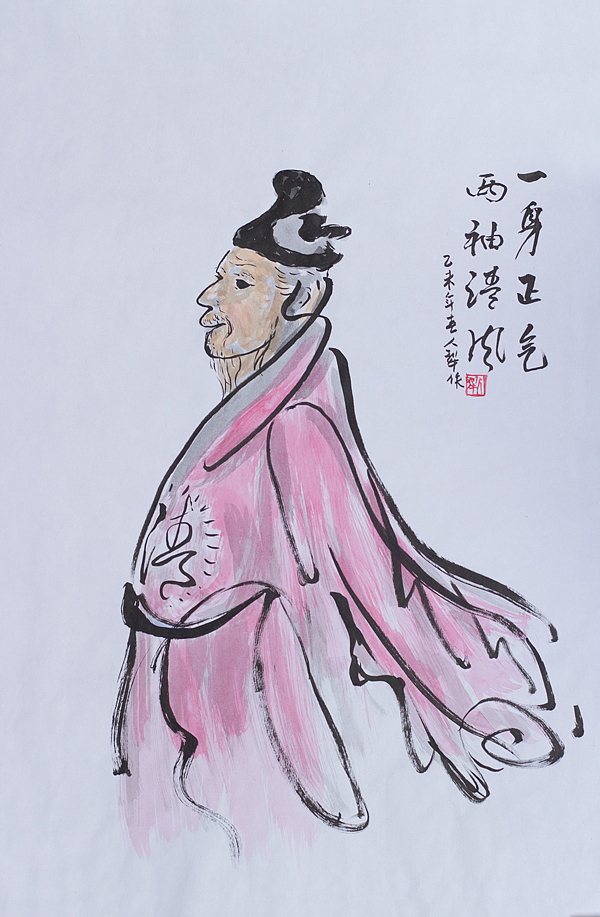 一身正气
两袖清风
乙未年人犁作
清